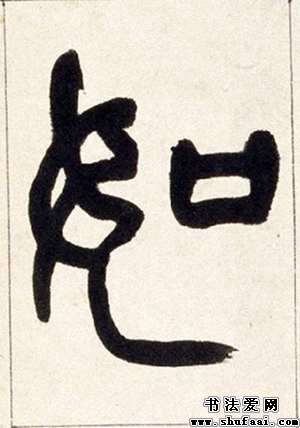 如
书法爱网
www.shufaai.com